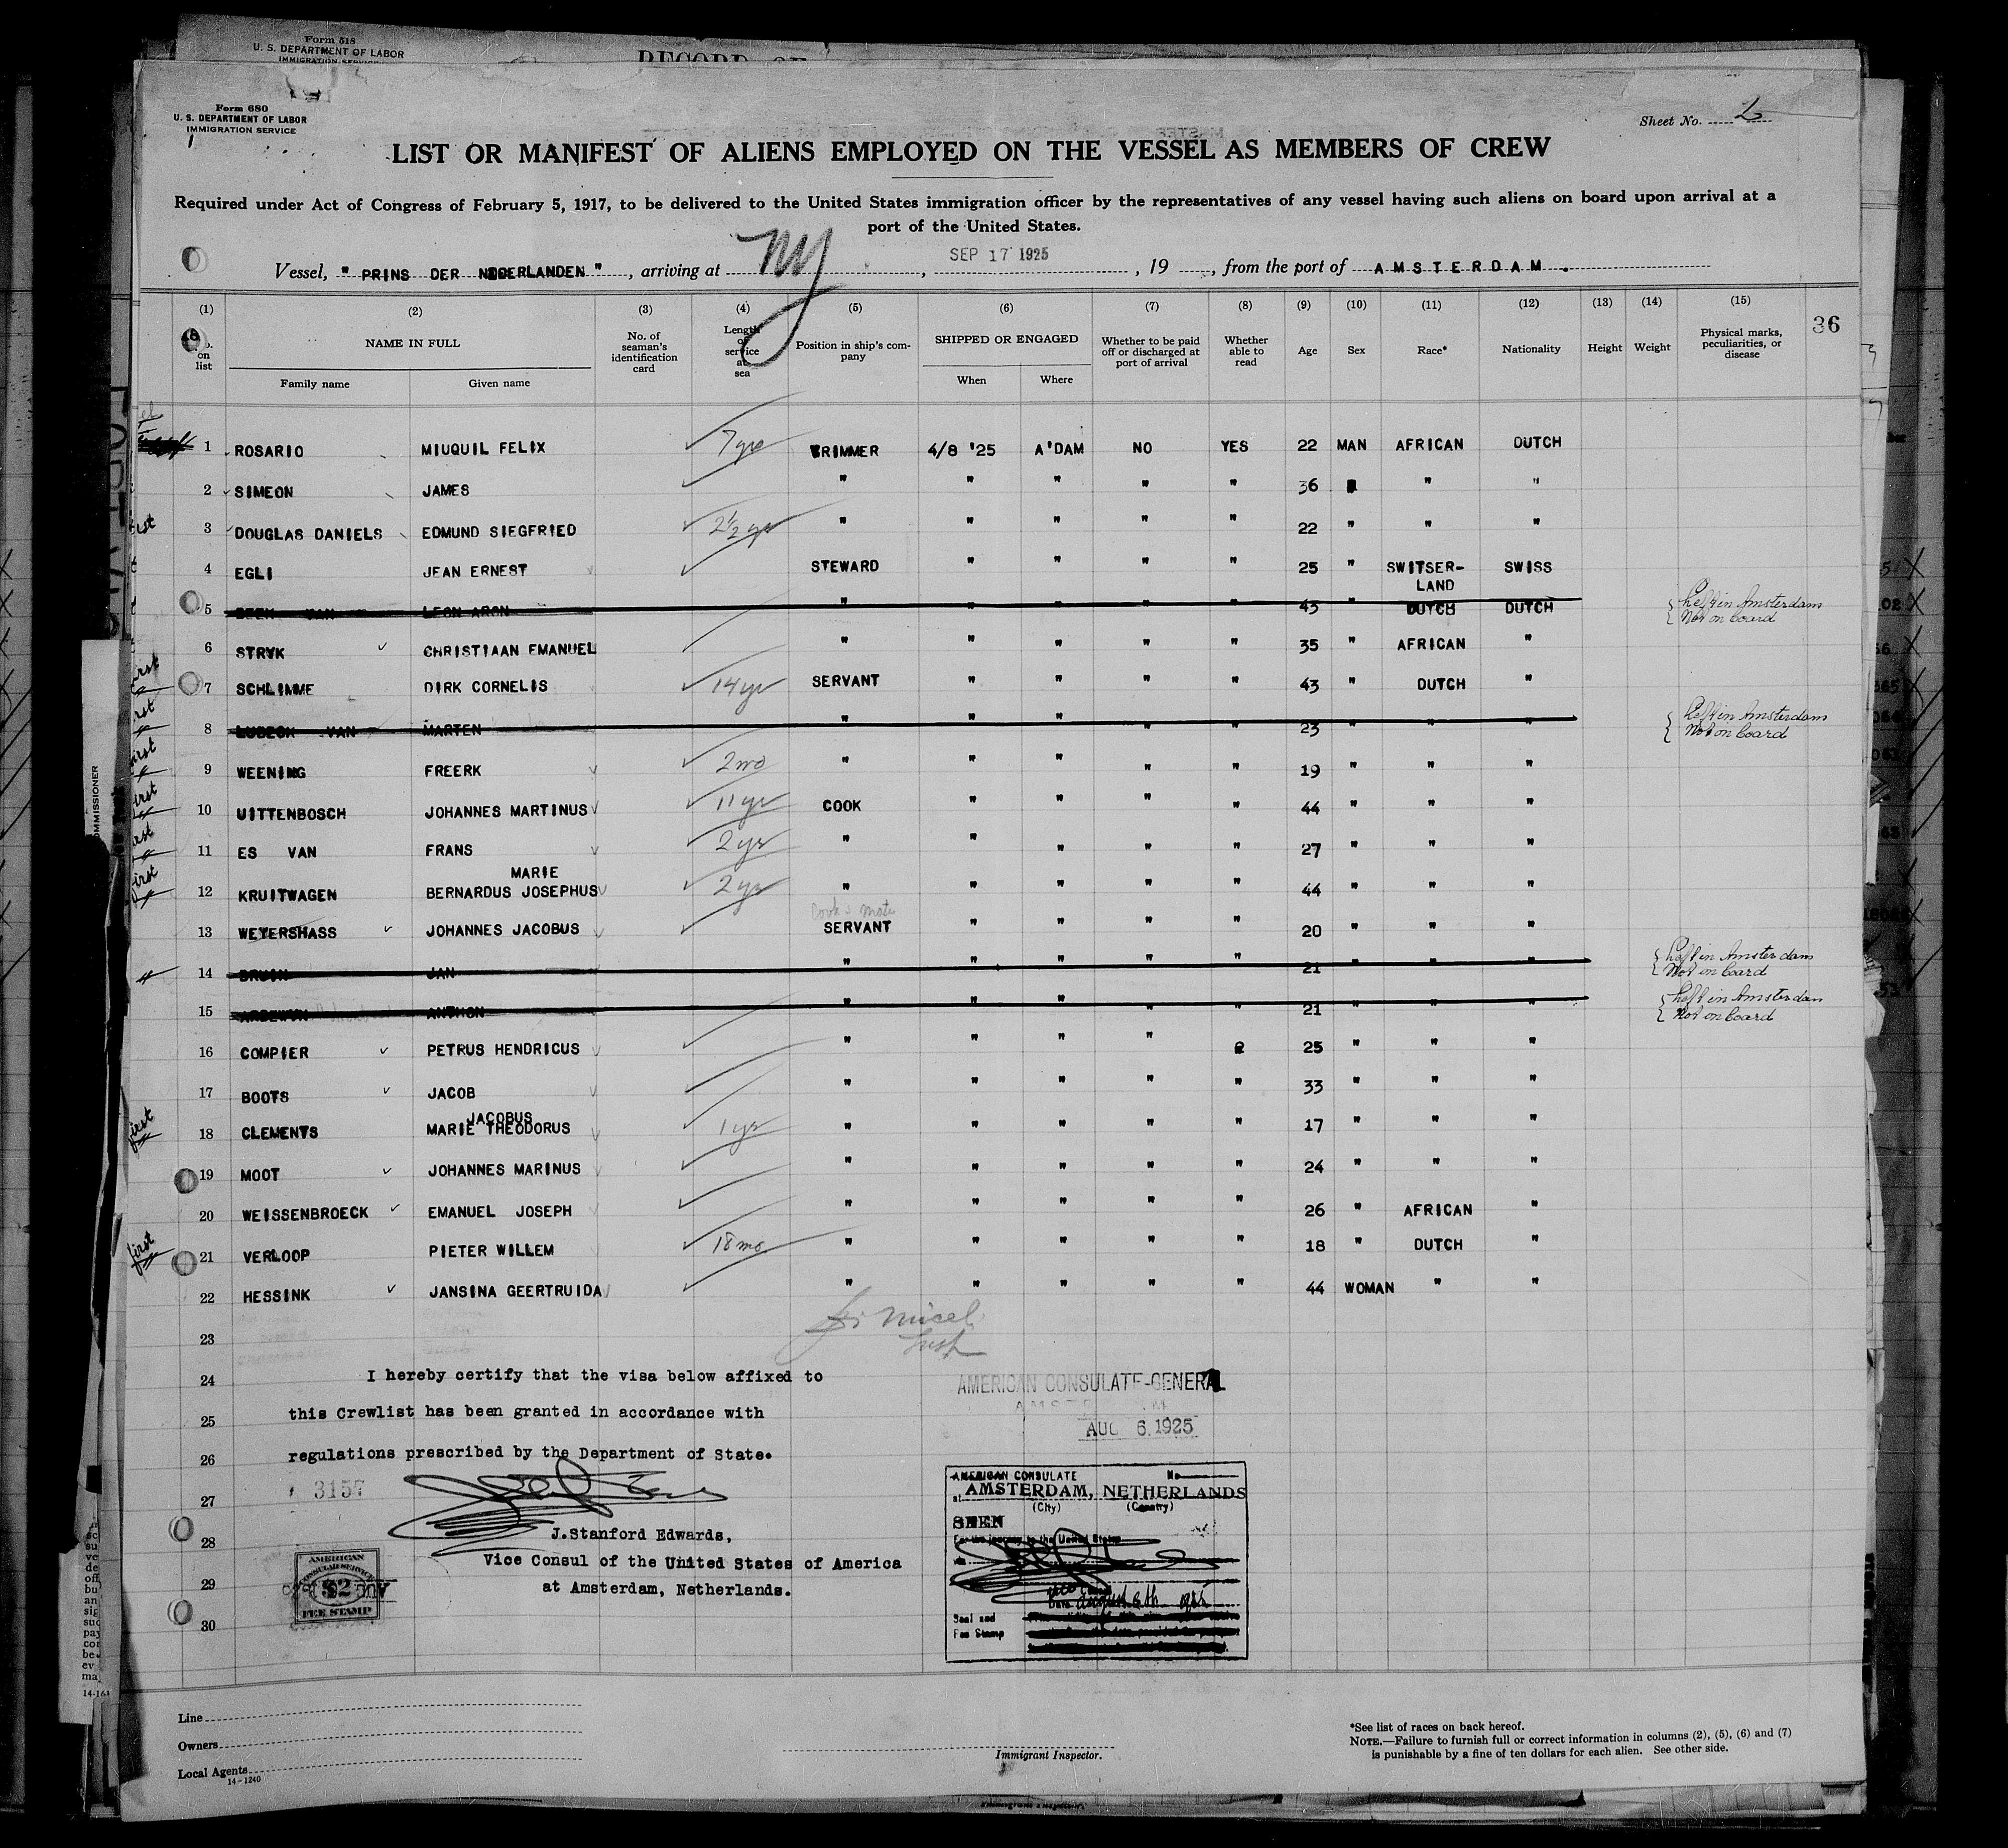 Form 518
U. S. DEPARTMENT OF LABOR
IMMIGRATION SERVICE
RECORD OF
Form 680
U. S. DEPARTMENT OF LABOR
IMMIGRATION SERVICE
Sheet No. 2
LIST OR MANIFEST OF ALIENS EMPLOYED ON THE VESSEL AS MEMBERS OF CREW
Required under Act of Congress of February 5, 1917, to be delivered to the United States immigration officer by the representatives of any vessel having such aliens on board upon arrival at a
port of the United States.
Vessel, " PRINS DER NEDERLANDEN ", arriving at NY, SEP 17 1925, 19 , from the port of AMSTERDAM.
(1) (2) (3) (4) (5) (6) (7) (8) (9) (10) (11) (12) (13) (14) (15)
36
No. on list
NAME IN FULL
Family name Given name
No. of seaman's identification card
Length of service at sea
Position in ship's company
SHIPPED OR ENGAGED
When Where
Whether to be paid off or discharged at port of arrival
Whether able to read
Age Sex Race* Nationality Height Weight
Physical marks, peculiarities, or disease
1 ROSARIO MIUQUIL FELIX 7 yrs TRIMMER 4/8 '25 A'DAM NO YES 22 MAN AFRICAN DUTCH
2 SIMEON JAMES " " " " " 36 " " "
3 DOUGLAS DANIELS EDMUND SIEGFRIED 2½ yr " " " " " 22 " " "
4 EGLI JEAN ERNEST STEWARD " " " " 25 " SWITSER-LAND SWISS
5 BEEM VAN LEON ARON " " " " " 43 " DUTCH DUTCH Left in Amsterdam Not on board
6 STRYK CHRISTIAAN EMANUEL " " " " " 35 " AFRICAN "
7 SCHLIMME DIRK CORNELIS 14 yr SERVANT " " " " 43 " DUTCH "
8 LUBECK VAN MARTEN " " " " " 23 " " " Left in Amsterdam Not on board
9 WEENING FREERK 2 mo " " " " " 19 " " "
10 UITTENBOSCH JOHANNES MARTINUS 11 yr COOK " " " " 44 " " "
11 ES VAN FRANS 2 yr " " " " " 27 " " "
12 KRUITWAGEN MARIE BERNARDUS JOSEPHUS 2 yr " " " " " 44 " " "
Cook's mate
13 WEYERSHASS JOHANNES JACOBUS SERVANT " " " " 20 " " "
14 BRUIN JAN " " " " " 21 " " " Left in Amsterdam Not on board
15 ANTHON " " " " " 21 " " " Left in Amsterdam Not on board
16 COMPIER PETRUS HENDRICUS " " " " 25 " " "
17 BOOTS JACOB " " " " " 33 " " "
18 CLEMENTS JACOBUS MARIE THEODORUS 1 yr " " " " " 17 " " "
19 MOOT JOHANNES MARINUS " " " " " 24 " " "
20 WEISSENBROECK EMANUEL JOSEPH " " " " " 26 " AFRICAN "
21 VERLOOP PIETER WILLEM 18 mo " " " " " 18 " DUTCH "
22 HESSINK JANSINA GEERTRUIDA " " " " " 44 WOMAN " "
23
24 I hereby certify that the visa below affixed to
25 this Crewlist has been granted in accordance with
26 regulations prescribed by the Department of State.
27
28
29
30
3157
J.Stanford Edwards,
Vice Consul of the United States of America
at Amsterdam, Netherlands.
AMERICAN
CONSULAR SERVICE
$2
FEE STAMP
AMERICAN CONSULATE-GENERAL
AUG 6, 1925
AMERICAN CONSULATE No
at AMSTERDAM, NETHERLANDS
(City) (Country)
SEEN
For the journey to the United States
via
Date August 6th 1925
Seal and
Fee Stamp
Line
Owners
Local Agents
14-1240
Immigrant Inspector.
*See list of races on back hereof.
NOTE.—Failure to furnish full or correct information in columns (2), (5), (6) and (7)
is punishable by a fine of ten dollars for each alien. See other side.